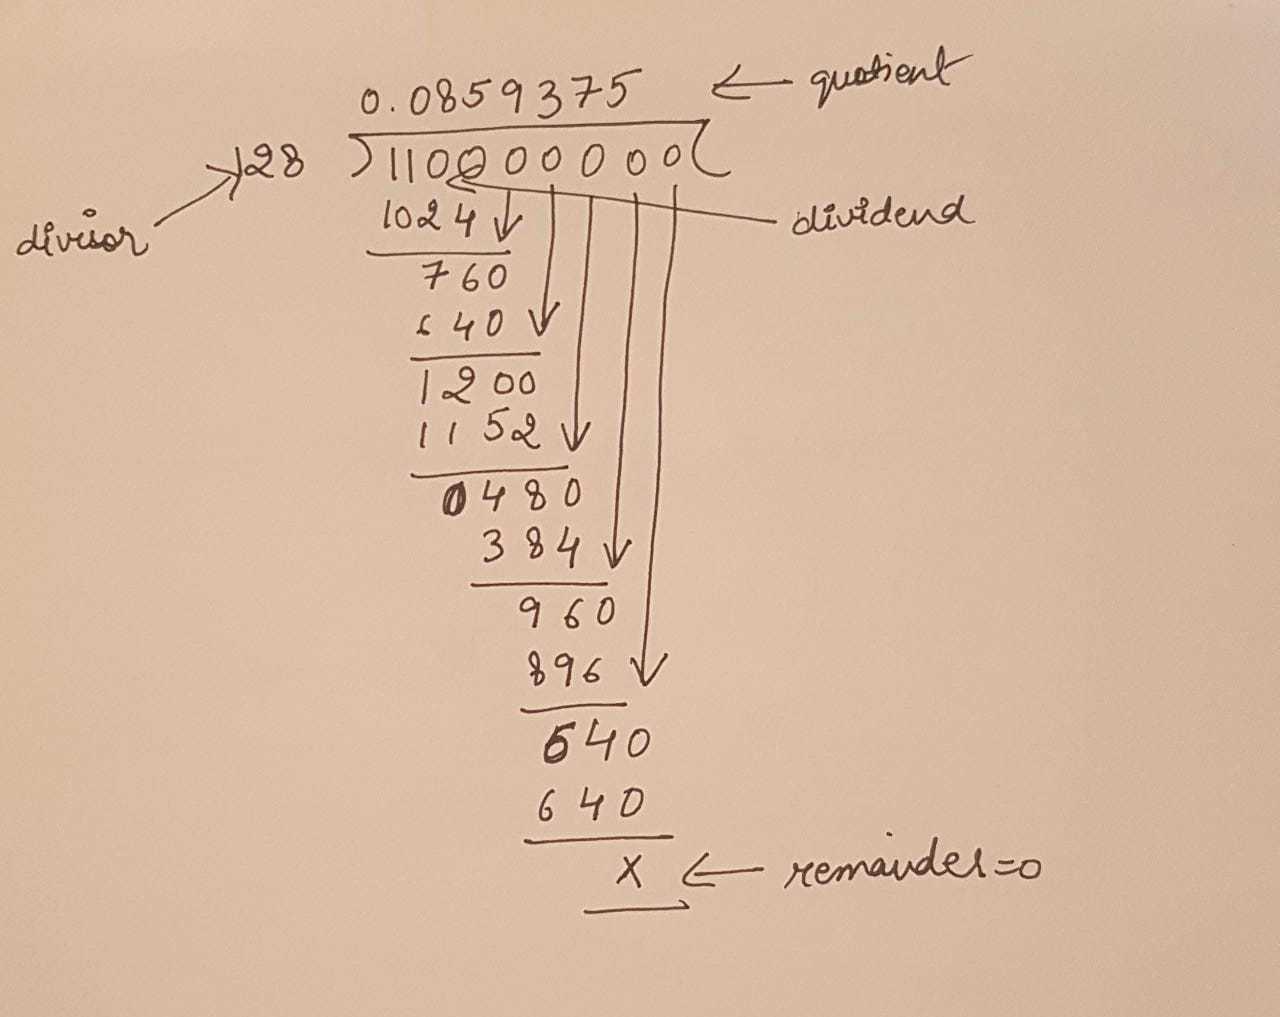 0.0859375 ← quotient
128 ) 110000000 (
1024 dividend
divisor
760
640
1200
1152
0480
384
960
896
640
640
x ← remainder=0